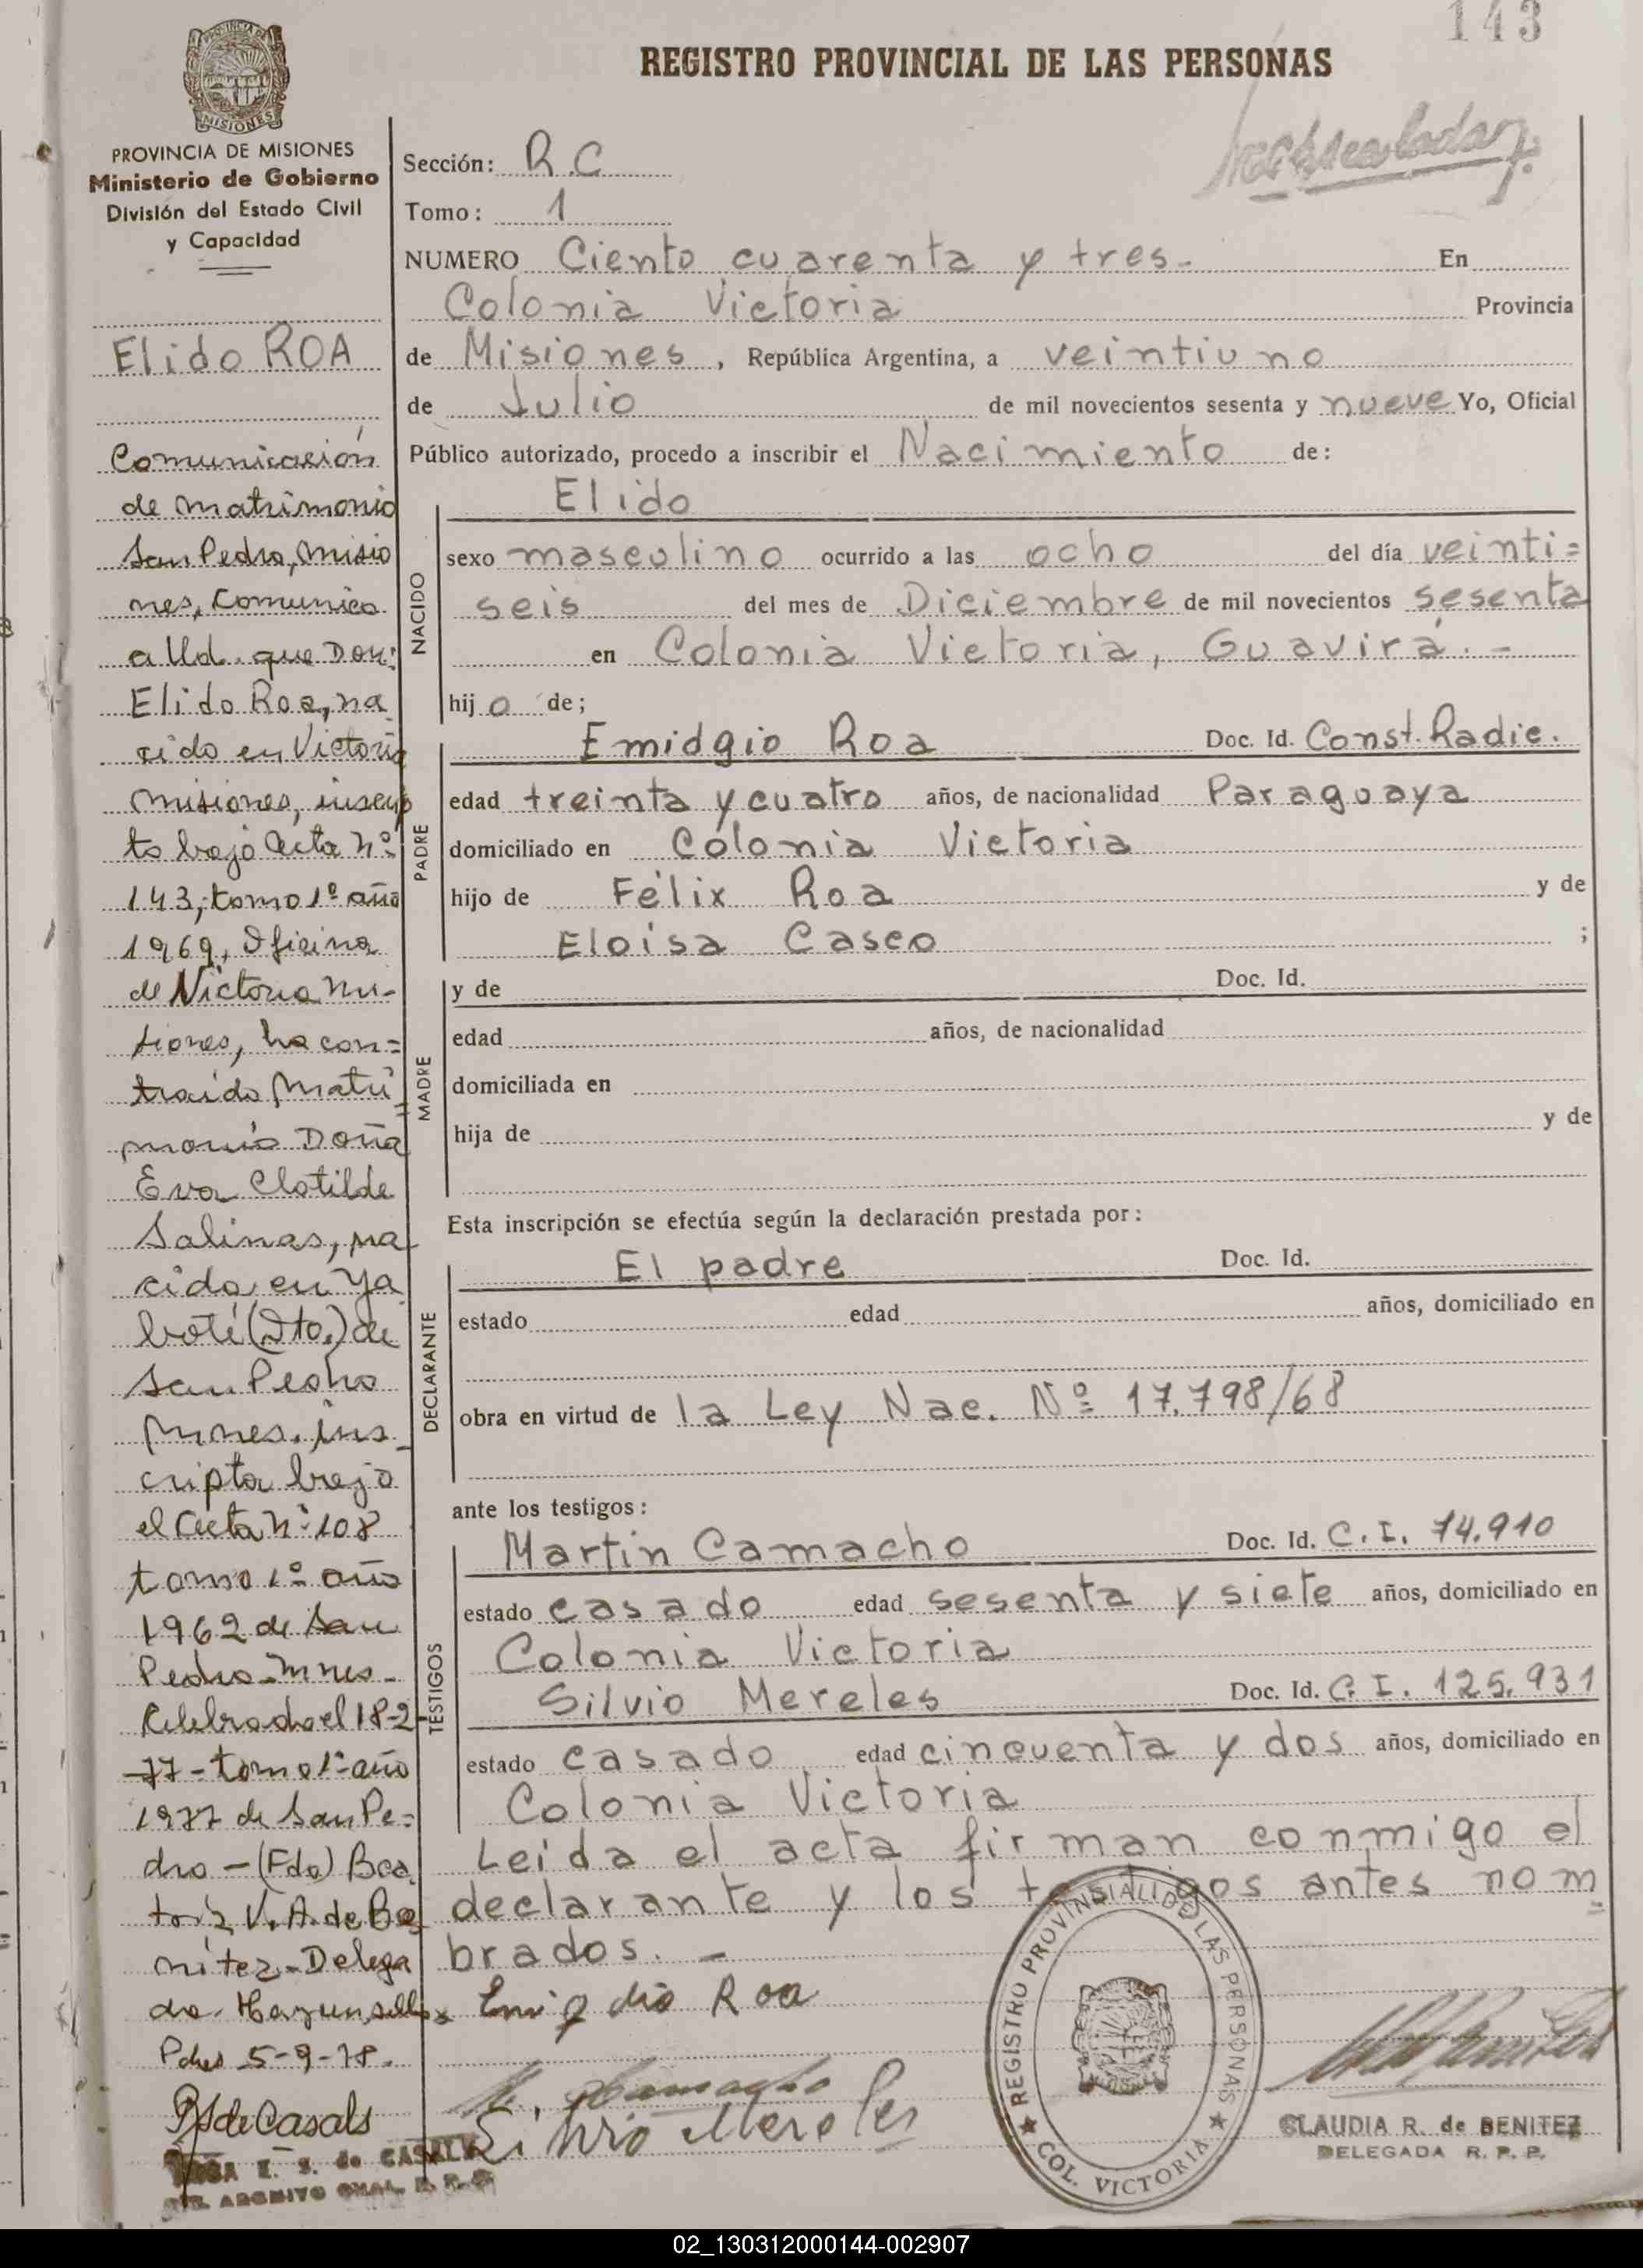 143
REGISTRO PROVINCIAL DE LAS PERSONAS
MISIONES
PROVINCIA DE MISIONES
Ministerio de Gobierno
División del Estado Civil
y Capacidad
Elido ROA
Comunicación
de matrimonio
San Pedro, Misio
nes, Comunico
a Ud. que Don:
Elido Roa, na
cido en Victoria
Misiones, inscrip
to bajo Acta Nº
143, tomo 1º año
1969, Oficina
de Victoria Mi-
siones, ha con=
traido Matri
=
monio Doña
Eva Clotilde
Salinas, na
cida en Ya
boti (Dto.) de
San Pedro
Mnes. ins_
cripta bajo
el Acta Nº 108
tomo 1º año
1962 de San
Pedro - Mnes -
Celebrado el 18-2-
77 - tomo 1º año
1977 de San Pe=
dro - (Fdo) Bea
triz V. A. de Be
nitez - Delega
da. Hay un sello
Pdas 5-9-78.
Sección: R.C
Tomo: 1
NUMERO Ciento cuarenta y tres - En
Colonia Victoria Provincia
de Misiones, República Argentina, a veintiuno
de Julio de mil novecientos sesenta y nueve Yo, Oficial
Público autorizado, procedo a inscribir el Nacimiento de:
Elido
NACIDO
sexo masculino ocurrido a las ocho del día veinti=
seis del mes de Diciembre de mil novecientos sesenta
en Colonia Victoria, Guavirá. -
hijo de;
PADRE
Emidgio Roa Doc. Id. Const. Radic.
edad treinta y cuatro años, de nacionalidad Paraguaya
domiciliado en Colonia Victoria
hijo de Félix Roa y de
Eloisa Casco ;
MADRE
y de Doc. Id.
edad años, de nacionalidad
domiciliada en
hija de y de
Esta inscripción se efectúa según la declaración prestada por:
DECLARANTE
El padre Doc. Id.
estado edad años, domiciliado en
obra en virtud de la Ley Nac. Nº 17.798/68
ante los testigos:
TESTIGOS
Martin Camacho Doc. Id. C. I. 74.910
estado casado edad sesenta y siete años, domiciliado en
Colonia Victoria
Silvio Mereles Doc. Id. C. I. 125.931
estado casado edad cincuenta y dos años, domiciliado en
Colonia Victoria
Leida el acta firman conmigo el
declarante y los testigos antes nom
=
brados. -
Emigdio Roa
M. Camacho
Silvio Mereles
REGISTRO PROVINSIAL DE LAS PERSONAS
COL. VICTORIA
CLAUDIA R. de BENITEZ
DELEGADA R. P. P.
PS de Casals
E. S. de CASALS
02_130312000144-002907